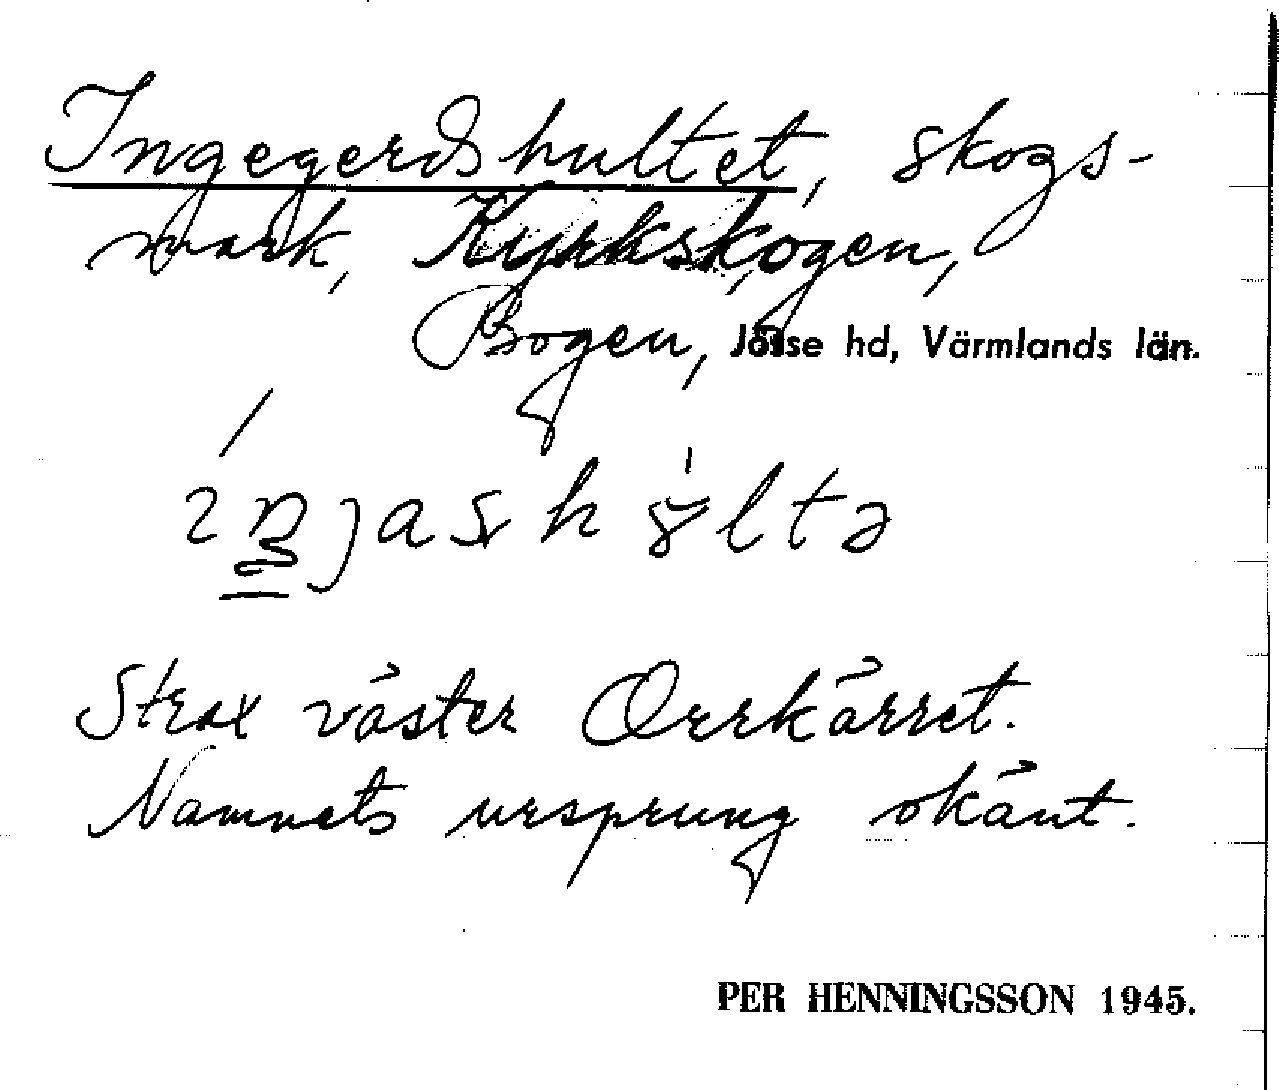 Ingegerdshultet, skogs-
mark, Kyrkskogen,
Bogen, Jösse hd, Värmlands län.
Strax väster Orrkärret.
Namnets ursprung okänt.
PER HENNINGSSON 1945.